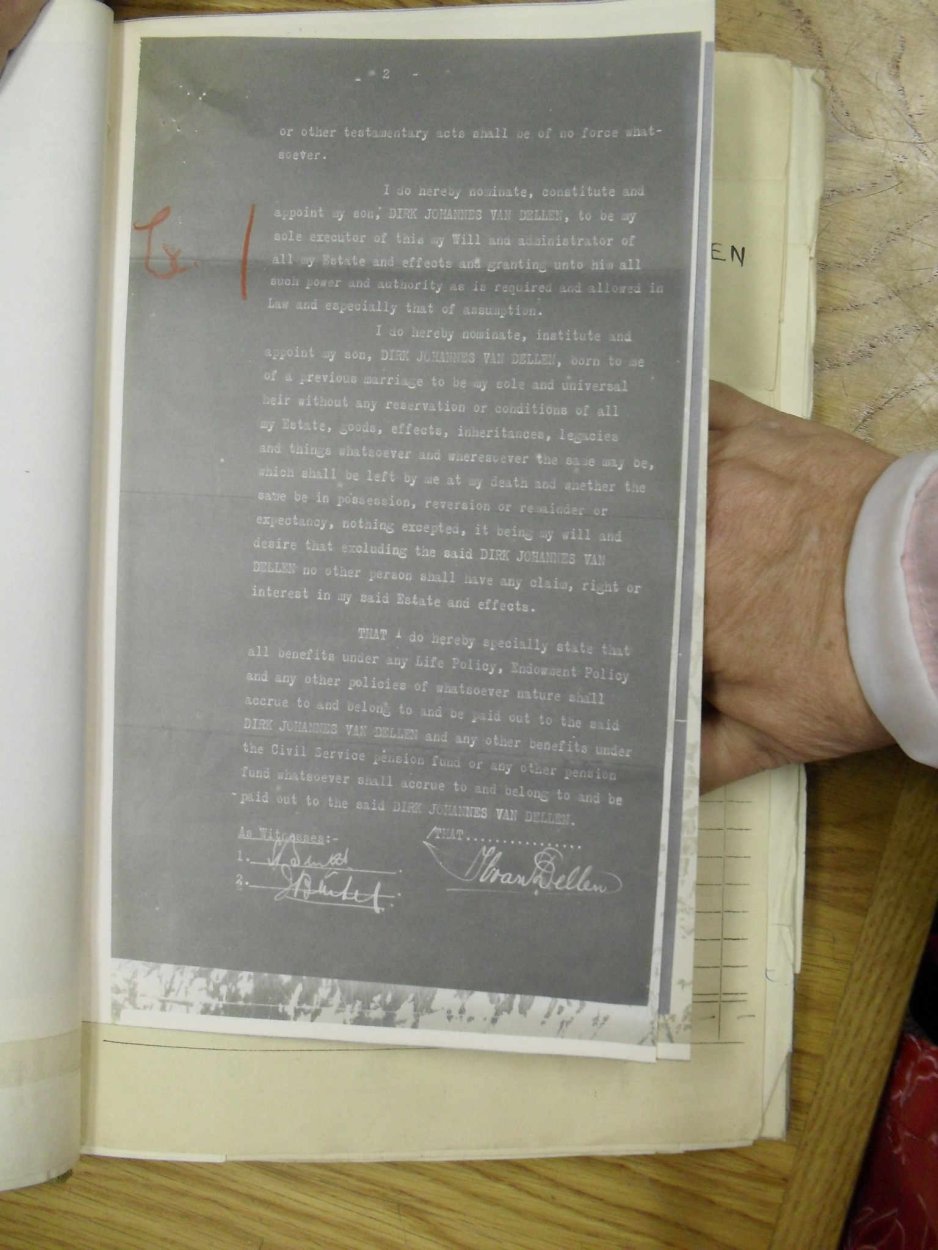 - 2 -
or other testamentary acts shall be of no force what-
soever.
I do hereby nominate, constitute and
appoint my son, DIRK JOHANNES VAN DELLEN, to be my
sole executor of this my Will and administrator of
all my Estate and effects and granting unto him all
such power and authority as is required and allowed in
Law and especially that of assumption.
I do hereby nominate, institute and
appoint my son, DIRK JOHANNES VAN DELLEN, born to me
of a previous marriage to be my sole and universal
heir without any reservation or conditions of all
my Estate, goods, effects, inheritances, legacies
and things whatsoever and wheresoever the same may be,
which shall be left by me at my death and whether the
same be in possession, reversion or remainder or
expectancy, nothing excepted, it being my will and
desire that excluding the said DIRK JOHANNES VAN
DELLEN no other person shall have any claim, right or
interest in my said Estate and effects.
THAT I do hereby specially state that
all benefits under any Life Policy, Endowment Policy
and any other policies of whatsoever nature shall
accrue to and belong to and be paid out to the said
DIRK JOHANNES VAN DELLEN and any other benefits under
the Civil Service pension fund or any other pension
fund whatsoever shall accrue to and belong to and be
paid out to the said DIRK JOHANNES VAN DELLEN.
As Witnesses:- THAT................
1.
2. van Dellen
EN